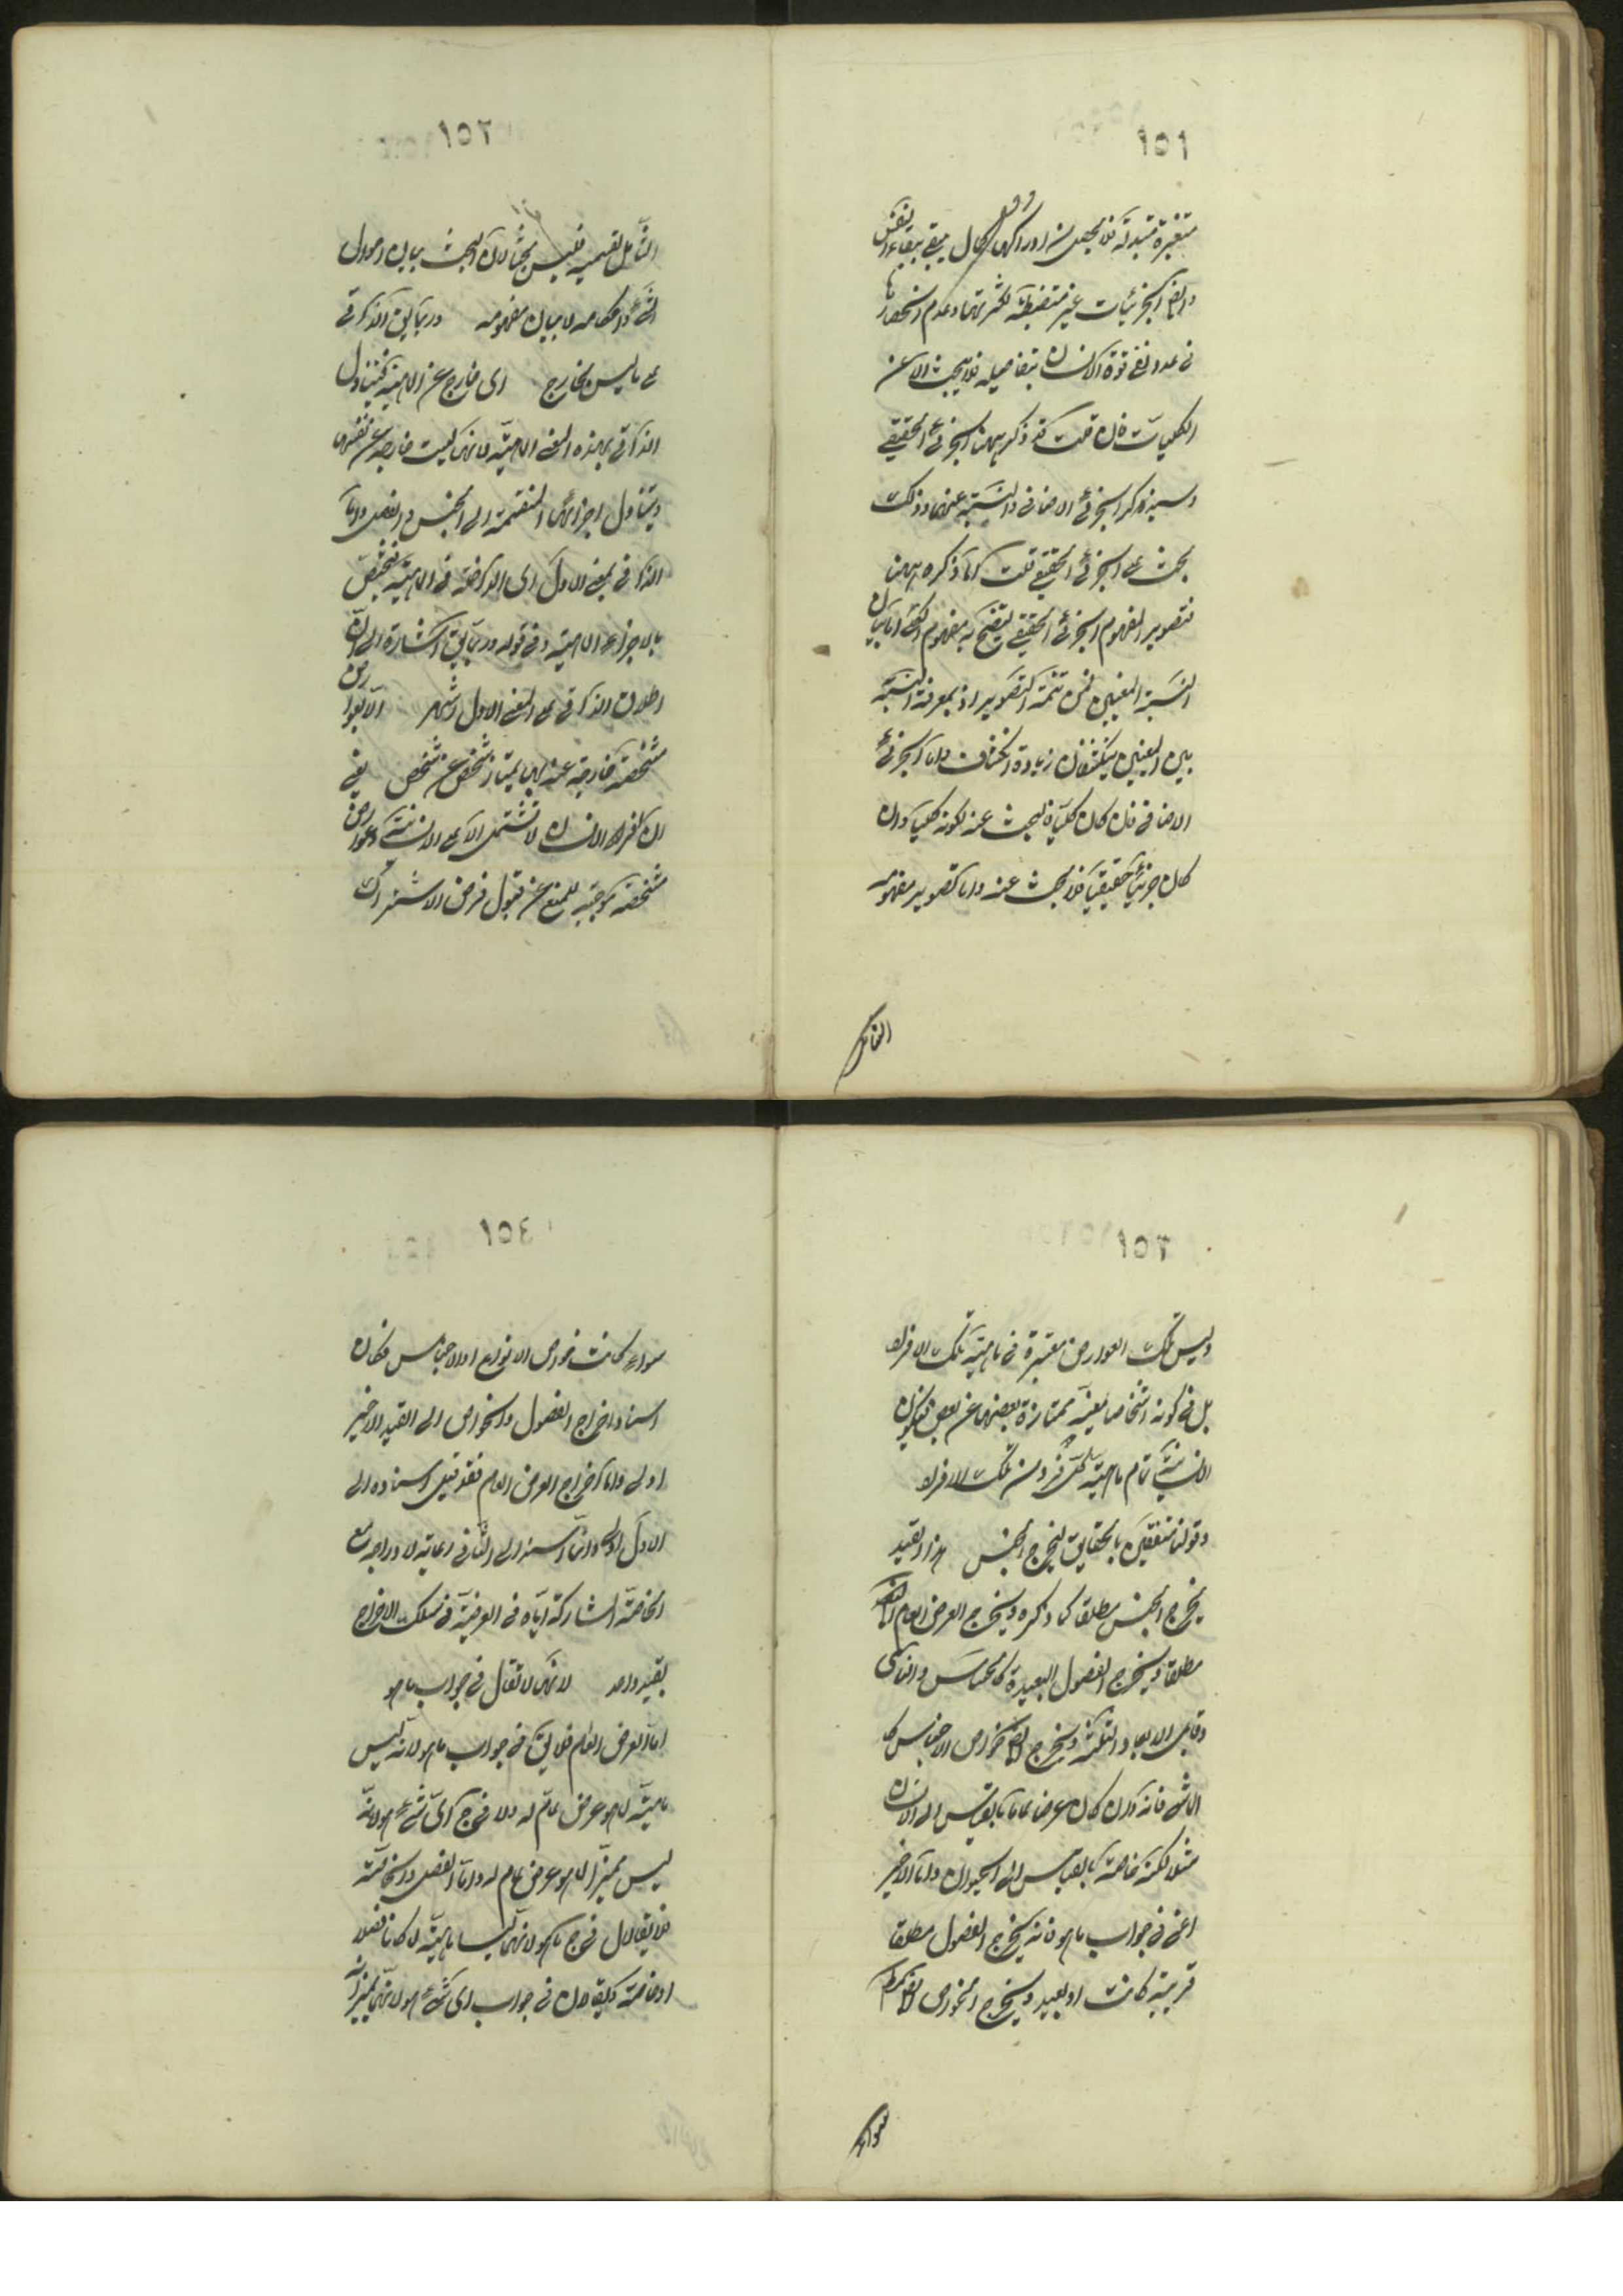 ١٥١
متغيرة متبدلة فلا يحصل من ادراكها كمال يبقى ببقاء النفس
وايضا الجزئيات غير منضبطة لكثرتها وعدم انحصارها
في عدد تفي قوة الانسان بتفاصيله فلا يبحث الا عن
الكليات فان قلت قد ذكر ههنا الجزئي الحقيقي
وسيذكر الجزئي الاضافي والنسبة عنهما وذلك
بحث عن الجزئي الحقيقي قلت اما ذكره ههنا
فتصوير لمفهوم الجزئي الحقيقي ليتضح به مفهوم الكلي واما بيان
النسبة المعنيين فمن تتمة التصوير اذ بمعرفة النسبة
بين المعنيين ينكشفان زيادة انكشاف واما الجزئي
الاضافي فان كان كليا فالبحث عنه لكونه كليا وان
كان جزئيا حقيقيا فلا بحث عنه واما تصوير مفهومه
١٥٢
الشامل لقسميه فليس بحثا لان البحث بيان احوال
الشيء واحكامه لا بيان مفهومه وربما يقال الذاتي
على ما ليس بخارج اى خارج عن الماهية فيتناول
الذاتي بهذه المعنى الماهية لانها ليست خارجة عن نفسها
ويتناول اجزائها المنقسمة الى الجنس والفصل واما
الذاتي بمعنى الاول اى الداخل في الماهية فيختص
بالاجزاء الماهية وفي قوله وربما يقال اشارة الى ان
اطلاق الذاتي على المعنى الاول اشهر الا بعوارض
مشخصة خارجة عنه بها يمتاز شخص عن شخص يعني
ان افراد الانسان لا تشتمل الا على الانسانية وعوارض
مشخصة موجبة للمنع عن قبول فرض الاشتراك
١٥٣
وليس تلك العوارض معتبرة في ماهية تلك الافراد
بل في كونه اشخاصا معينة ممتازة بعضها عن بعض فيكون
الانسانية تمام ماهية كل فرد من تلك الافراد
وقولنا متفقين بالحقايق ليخرج الجنس هذا القيد
يخرج الجنس مطلقا كما ذكره ويخرج العرض العام ايضا
مطلقا ويخرج الفصول البعيدة كالحساس والنامي
وقابل الابعاد الثلثة ويخرج ايضا خواص الاجناس كا
الماشي فانه وان كان عرضا عاما بالقياس الى الانسان
مثلا لكنه خاصة بالقياس الى الحيوان واما الاخير
اعني في جواب ما هو فانه يخرج الفصول مطلقا
قريبة كانت او بعيدة ويخرج الخواص ايضا مطلقا
سواء
١٥٤
سواء كانت خواص الانواع او الاجناس فكان
اسناد اخراج الفصول والخواص الى القيد الاخير
اولى واما اخراج العرض العام فقد قيل اسناده الى
الاول اولى وانما اسنده الى الثاني رعاية لادراجه مع
الخاصة المشاركة اياه في العرضية في سلك الاخراج
بقيد واحد لانها لا تقال في جواب ما هو
اما العرض العام فلا يقال في جواب ما هو لانه ليس
ماهية لما هو عرض عام له ولا في ج اى شيء هو لانه
ليس مميزا لما هو عرض عام له واما الفصل والخاصة
فلا يقالان في ج ما هو لانهما ليسا ماهية لما كانا فصلا
او خاصة ويقالان في جواب اى شيء هو لانهما يميزانه